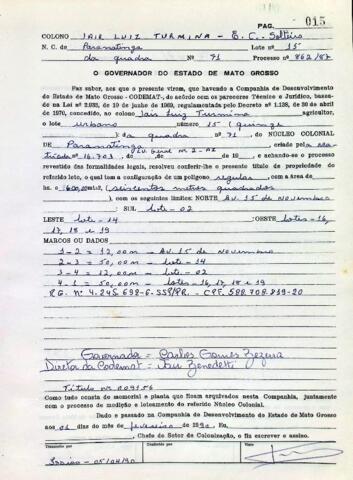 PAG. 015
COLONO JAIR LUIZ TURMINA - E.C. Solteiro
N. C. de Paranatinga Lote nº 15
da quadra Nº 71 Processo nº 862/87
O GOVERNADOR DO ESTADO DE MATO GROSSO
Faz saber, aos que o presente virem, que havendo a Companhia de Desenvolvimento
do Estado de Mato Grosso - CODEMAT-, de acôrdo com os pareceres Técnico e Jurídico, basea-
do na Lei nº 2.933, de 19 de junho de 1969, regulamentada pelo Decreto nº 1.138, de 30 de abril
de 1970, concedido, ao colono Jair Luiz Turmina agricultor,
o lote urbano número 15 (quinze
): da quadra nº 71, NÚCLEO COLONIAL
DE Paranatinga criado pela
nº 16.703, de de de 19 , e achando-se o processo
revestido das formalidades legais, resolveu conferir-lhe o presente título de propriedade do
referido lote, o qual tem a configuração de um polígono regular com a área de
hs. 600,00mts2, (seiscentos metros quadrados)
, com os seguintes limites: NORTE Av. 15 de Novembro
: SUL lote-02
LESTE lote-14 :OESTE lotes-16,
17, 18 e 19
MARCOS OU DADOS
1-2 = 12,00m - Av. 15 de Novembro
2-3 = 50,00m - lote-14
3-4 = 12,00m - lote-02
4-1 = 50,00m - lotes-16, 17, 18 e 19
R.G. nº 4.245.698-6.SSP/PR. - CPF. 588.708.819-20
Governador = Carlos Gomes Bezerra
Diretor da Codemat = Jair Benedetti
Título nº 009156
Como tudo consta do memorial e planta que ficam arquivados nesta Companhia, juntamente
com o processo de medição e loteamento do referido Núcleo Colonial.
Dado e passado na Companhia de Desenvolvimento do Estado de Mato Grosso
aos 01 dias do mês de fevereiro de 1990. Eu,
, Chefe do Setor de Colonização, o fiz escrever e assino.
Visto
05/04/90